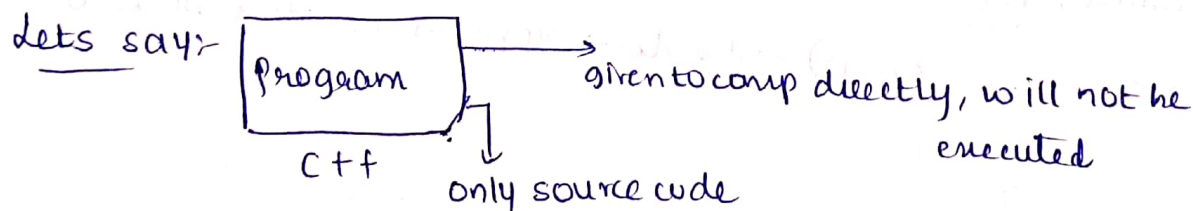 Lets say:-
Program
given to comp directly, will not be
executed
C++
only source code